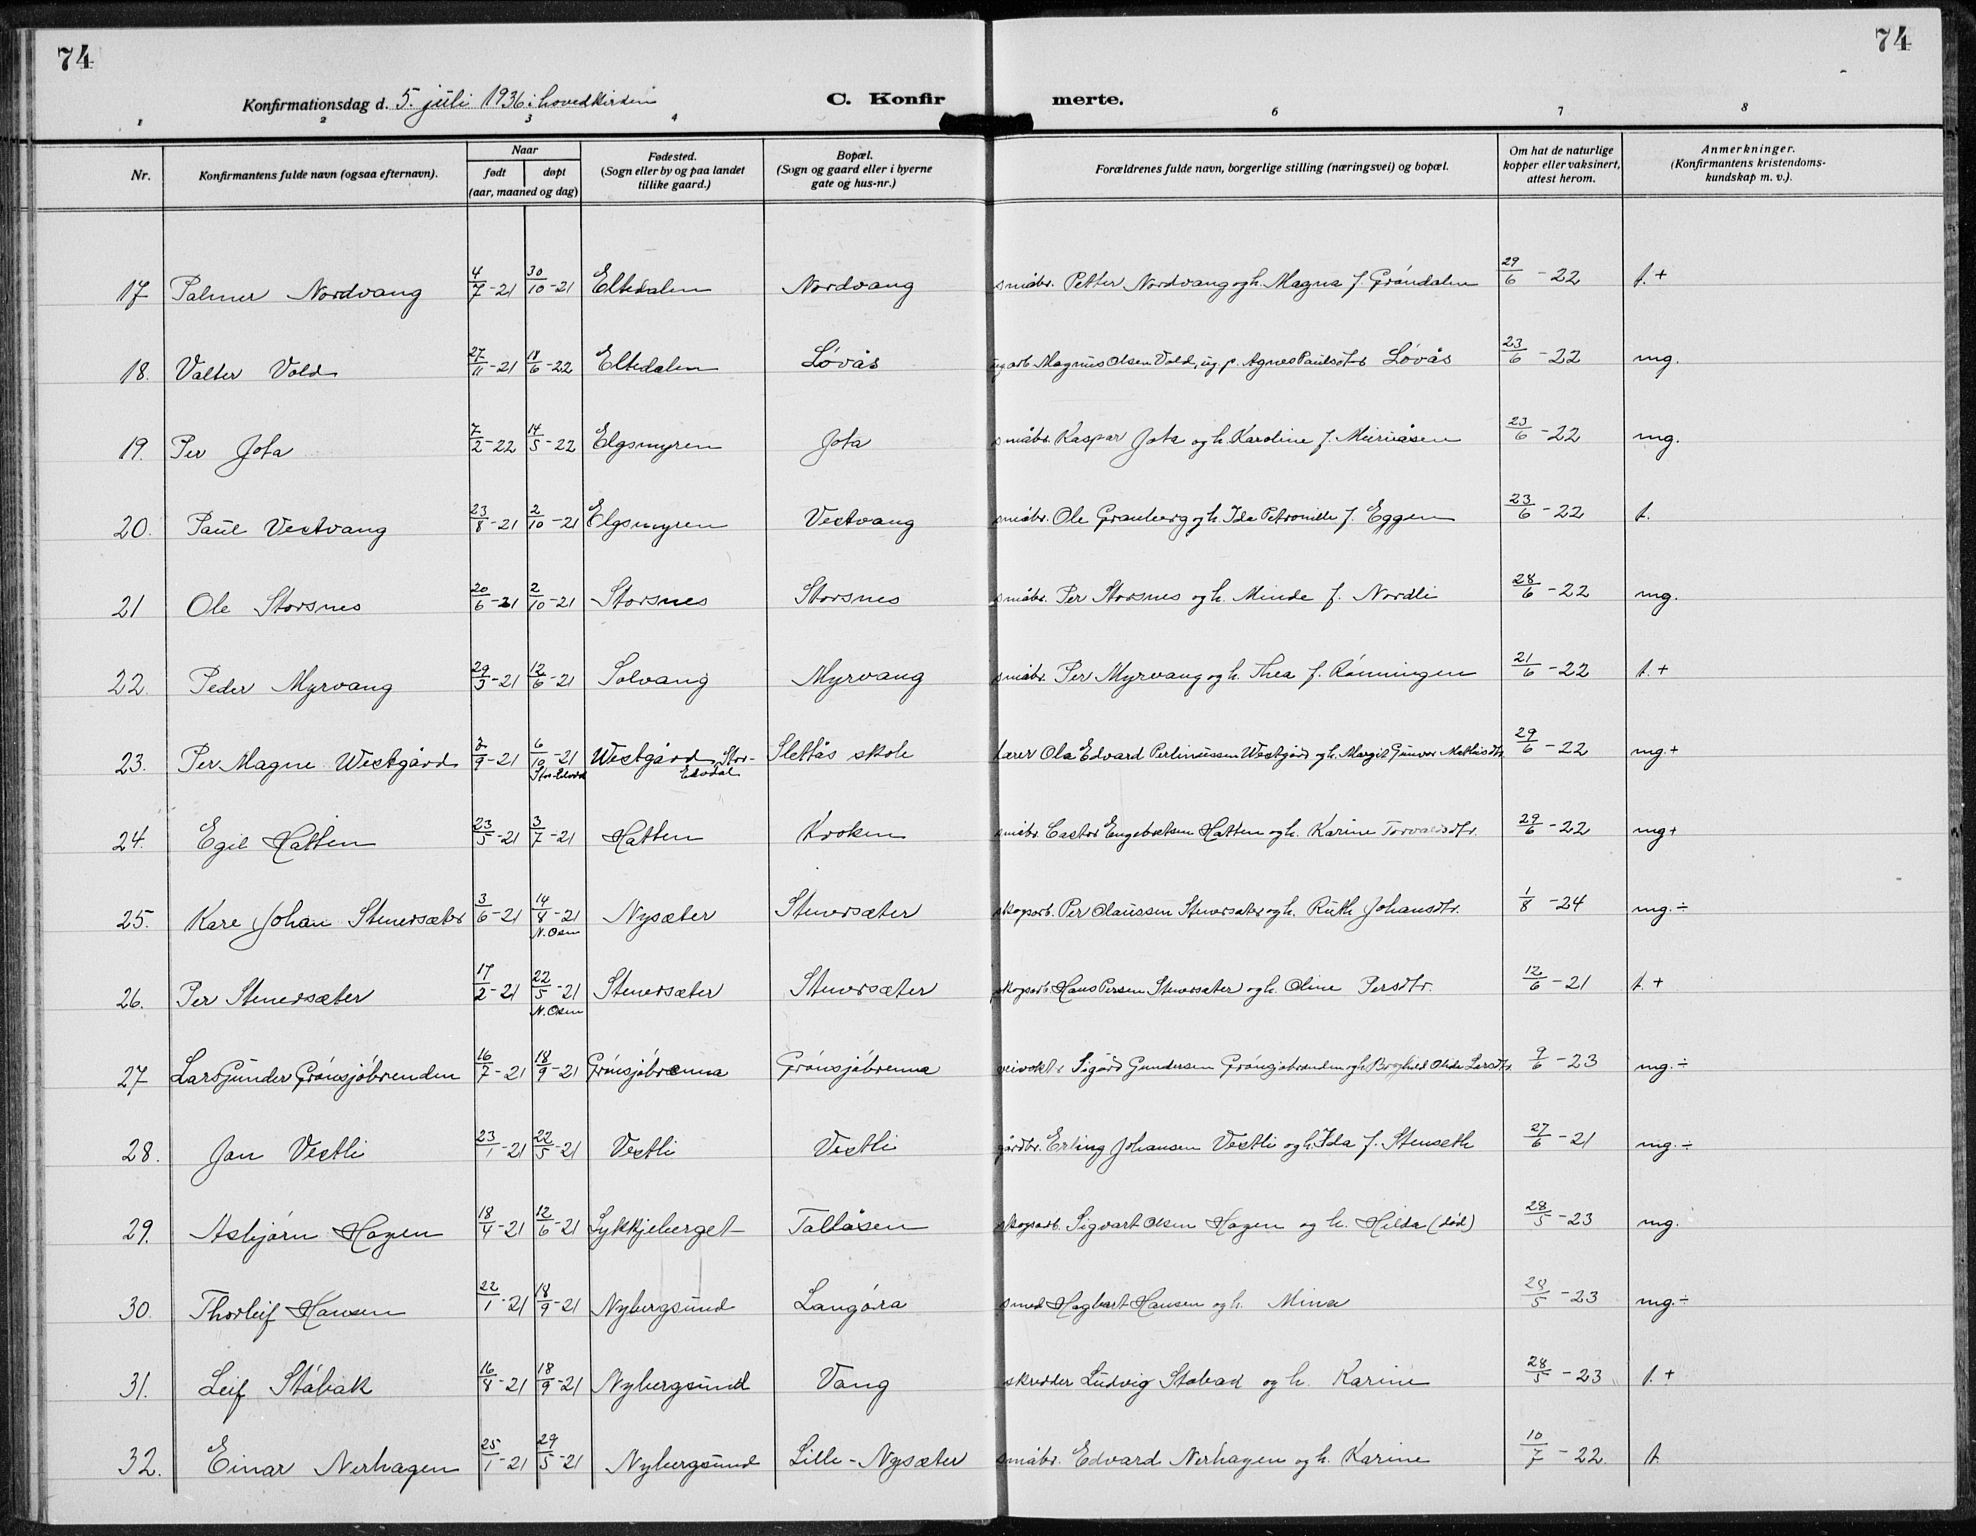 74
74
Konfirmationsdag d. 5. juli 1936 i hovedkirken
C. Konfirmerte.
1 2 3 4 6 7 8
Nr.
Konfirmantens fulde navn (ogsaa efternavn).
Naar
født
døpt
(aar, maaned og dag)
Fødested.
(Sogn eller by og paa landet
tillike gaard.)
Bopæl.
(Sogn og gaard eller i byerne
gate og hus-nr.)
Forældrenes fulde navn, borgerlige stilling (næringsvei) og bopæl.
Om hat de naturlige
kopper eller vaksinert,
attest herom.
Anmerkninger.
(Konfirmantens kristendoms-
kundskap m. v.).
17 Palmer Nordvang 4/7-21 30/10-21 Eltdalen Nordvang småbr. Petter Nordvang og h. Magna f. Gröndalen 29/6-22 t.+
18. Valter Vold 27/11-21 18/6-22 Eltdalen Lövås ug. arb. Magnus Olsen Vold, ug. p. Agnes Paulsdtr Lövås 23/6-22 mg.
19. Per Jota 7/2-22 14/5-22 Elgsmyren Jota småbr. Kaspar Jota og h. Karoline f. 23/6-22 mg.
20. Paul Vestvang 23/8-21 2/10-21 Elgsmyren Vestvang småbr. Ole Granberg og h. Ida Petronille f. Eggen 23/6-22 t.
21 Ole Storsnes 20/6-21 2/10-21 Storsnes Storsnes småbr. Per Storsnes og h. Minda f. Nordli 28/6-22 mg.
22. Peder Myrvang 29/3-21 12/6-21 Solvang Myrvang småbr. Per Myrvang og h. Thea f. Rönningen 21/6-22 t.+
23. Per Magne Westgård /9-21 6/10-21 Westgård, Stor- Slettås skole lærer Ola Edvard Perlinussen Westgård og h. Margit Gunvor Mathisdtr. 29/6-22 mg.+
Stor-Elvdal Elvdal
24. Egil Hatten 23/5-21 3/7-21 Hatten Kroken småbr. Castor Engebretsen Hatten og h. Karine Torvaldsdtr. 29/6-22 mg+
25. Kåre Johan Stenersæter 3/6-21 14/8-21 Nysæter Stenersæter skogsarb. Per Olaussen Stenersæter og h. Ruth Johansdtr. 1/8-24 mg.÷
N. Osen
26. Per Stenersæter 17/2-21 22/5-21 Stenersæter Stenersæter skogsarb. Hans Persen Stenersæter og h. Oline Persdtr. 12/6-21 t.+
N. Osen
27 Lars Gunder Grönsjöbrenden 16/7-21 18/9-21 Grönsjöbrenna Grönsjöbrenna veivokt. Sigurd Gundersen Grönsjöbrenden og h. Borghild Olida Larsdtr. 9/6-23 mg.÷
28. Jan Vestli 23/1-21 22/5-21 Vestli Vestli gårdbr. Erling Johansen Vestli og h. Ida f. Stenseth 27/6-21 mg.÷
29. Asbjørn Hagen 18/4-21 12/6-21 Lykkjeberget Tallåsen skogsarb. Sigvart Olsen Hagen og h. Hilda (död) 28/5-23 mg.
30. Thorleif Hansen 22/1-21 18/9-21 Nybergsund Langöra smed Hagbart Hansen og h. Mina 28/5-23 mg.÷
31. Leif Stöbak 16/8-21 18/9-21 Nybergsund Vang skredder Ludvig Stöbak og h. Karine 28/5-23 t.+
32. Einar Nerhagen 25/1-21 29/5-21 Nybergsund Lille-Nysæter småbr. Edvard Nerhagen og h. Karine 10/7-22 t.